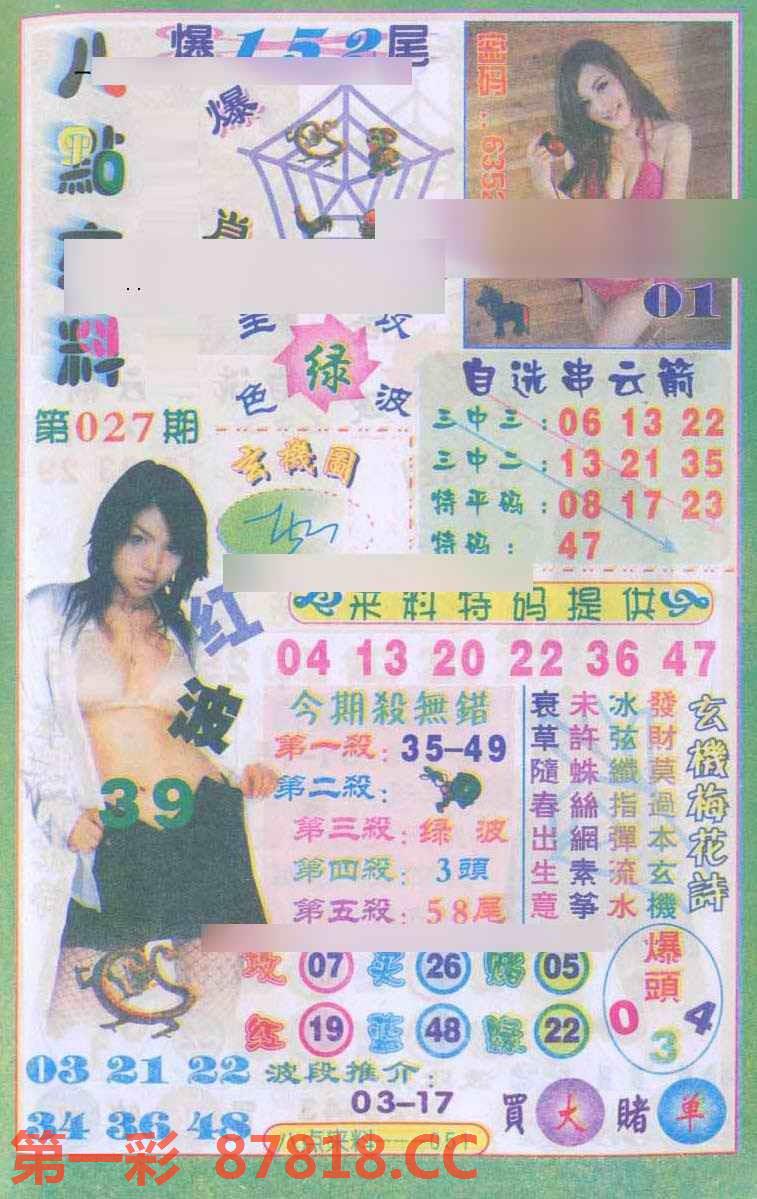 爆152尾
八點
料
爆
肖
密码:635
01
绿
色 波
第027期
玄機圖
自选串云箭
三中三:06 13 22
三中二:13 21 35
特平码:08 17 23
特码: 47
红
波
39
来料特码提供
04 13 20 22 36 47
今期殺無錯
第一殺:35-49
第二殺:
第三殺:绿波
第四殺:3頭
第五殺:58尾
玄機梅花詩
發財莫過本玄機
冰弦纖指彈流水
未許蛛絲網素箏
衰草隨春出生意
07 买 26 05
红 19 蓝 48 绿 22
爆頭
0 3 4
03 21 22
34 36 48
波段推介:
03-17
買大賭单
第一彩 87818.CC